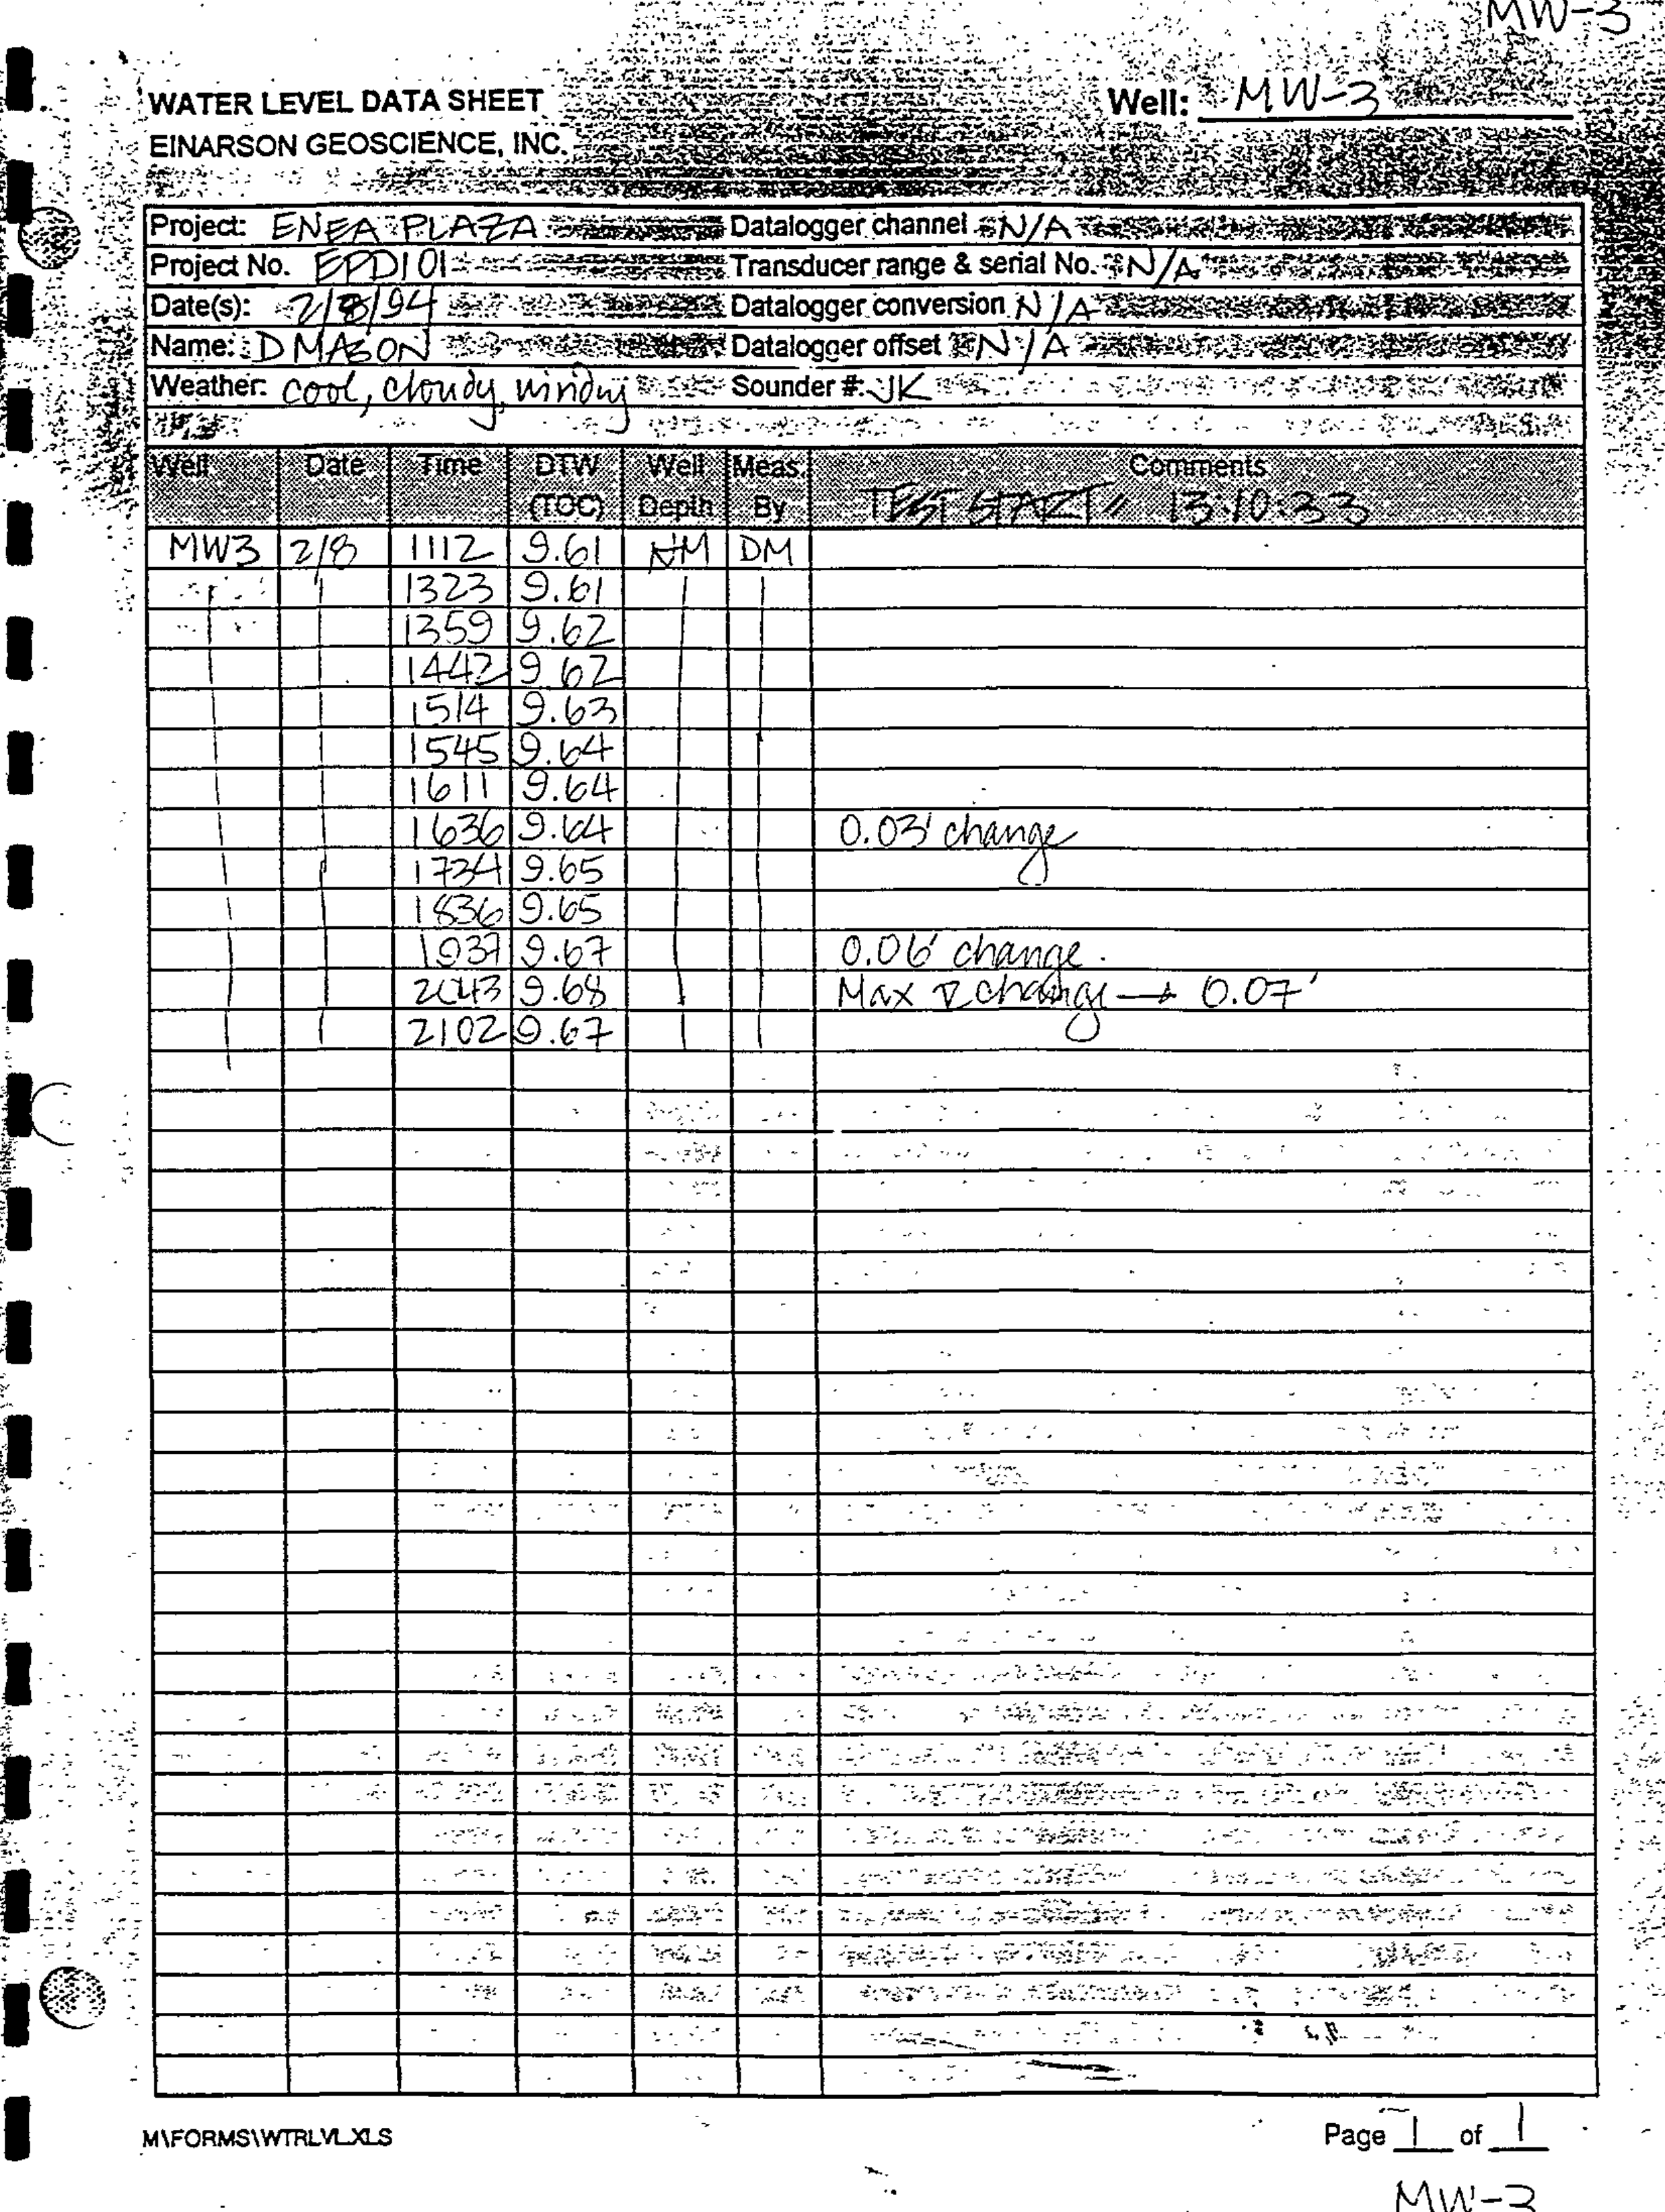 MW-3
WATER LEVEL DATA SHEET
Well: MW-3
EINARSON GEOSCIENCE, INC.
Project: ENEA PLAZA Datalogger channel N/A
Project No. EPD101 Transducer range & serial No. N/A
Date(s): 2/8/94 Datalogger conversion N/A
Name: D MASON Datalogger offset N/A
Weather: cool, cloudy, windy Sounder #: JK
Well Date Time DTW Well Meas. Comments
(TOC) Depth By TEST START 13:10:33
MW3 2/8 1112 9.61 NM DM
1323 9.61
1359 9.62
1442 9.62
1514 9.63
1545 9.64
1611 9.64
1636 9.64 0.03' change
1734 9.65
1836 9.65
1937 9.67 0.06' change.
2043 9.68 Max ∇ change → 0.07'
2102 9.67
M\FORMS\WTRLVL.XLS
Page 1 of 1
MW-3